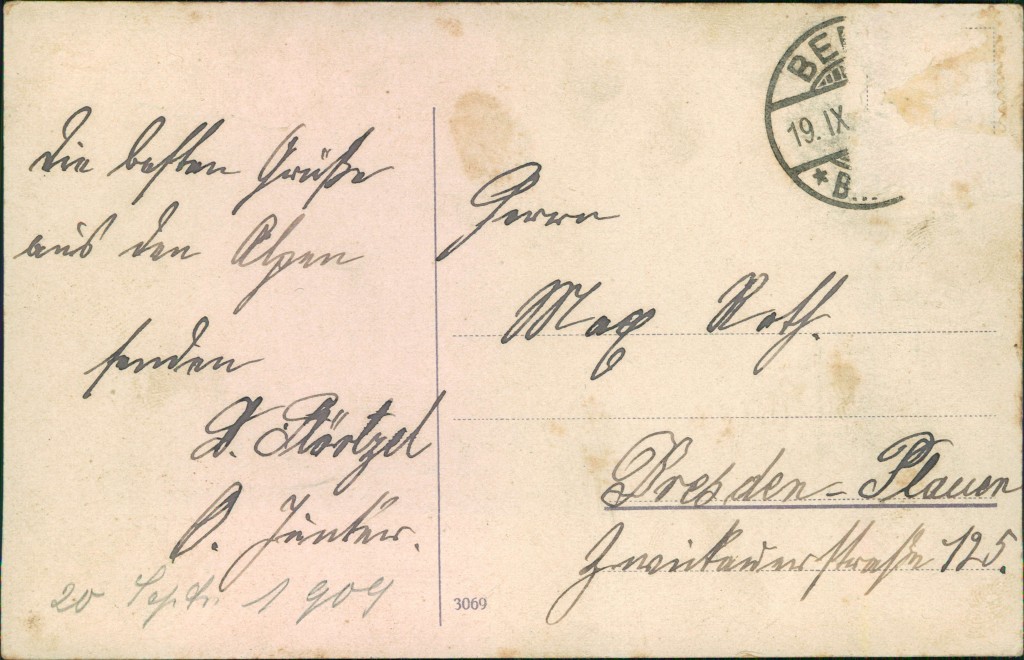 Die besten Grüße
aus den Alpen
senden
20 Sept. 1909
3069
BE
19. IX
* B...
Herrn
Max Roth.
Dresden - Plauen
Zwickauerstraße 125.